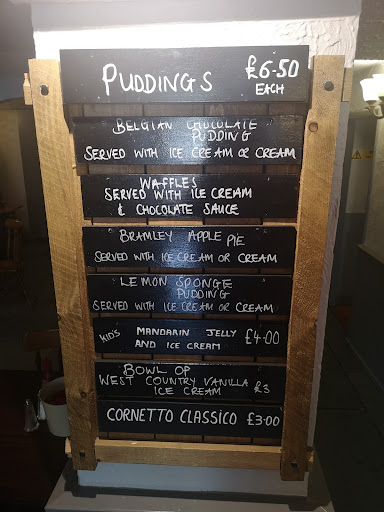 PUDDINGS £6-50
EACH
BELGIAN CHOCOLATE
PUDDING
SERVED WITH ICE CREAM OR CREAM
WAFFLES
SERVED WITH ICE CREAM
& CHOCOLATE SAUCE
BRAMLEY APPLE PIE
SERVED WITH ICE CREAM OR CREAM
LEMON SPONGE
PUDDING
SERVED WITH ICE CREAM OR CREAM
KID'S MANDARIN JELLY £4-00
AND ICE CREAM
BOWL OP
WEST COUNTRY VANILLA £3
ICE CREAM
CORNETTO CLASSICO £3-00